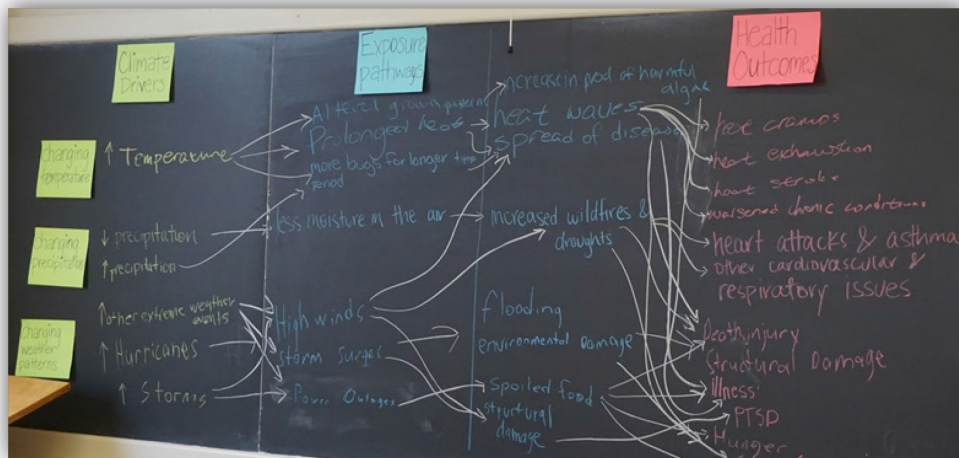 Climate
Drivers
Exposure
pathways
Health
Outcomes
changing
temperature
↑ Temperature
changing
precipitation
↓ precipitation
↑ precipitation
changing
weather
patterns
↑ other extreme weather
events
↑ Hurricanes
↑ Storms
Altered growth patterns
Prolonged heat
more bugs for longer time
period
less moisture in the air
High winds
storm surges
Power Outages
increase in prod of harmful
algae
heat waves
spread of disease
increased wildfires &
droughts
flooding
environmental Damage
spoiled food
structural
damage
heat cramps
heat exhaustion
heat stroke
worsened chronic conditions
heart attacks & asthma
other cardiovascular &
respiratory issues
Death, injury
Structural Damage
illness
PTSD
Hunger